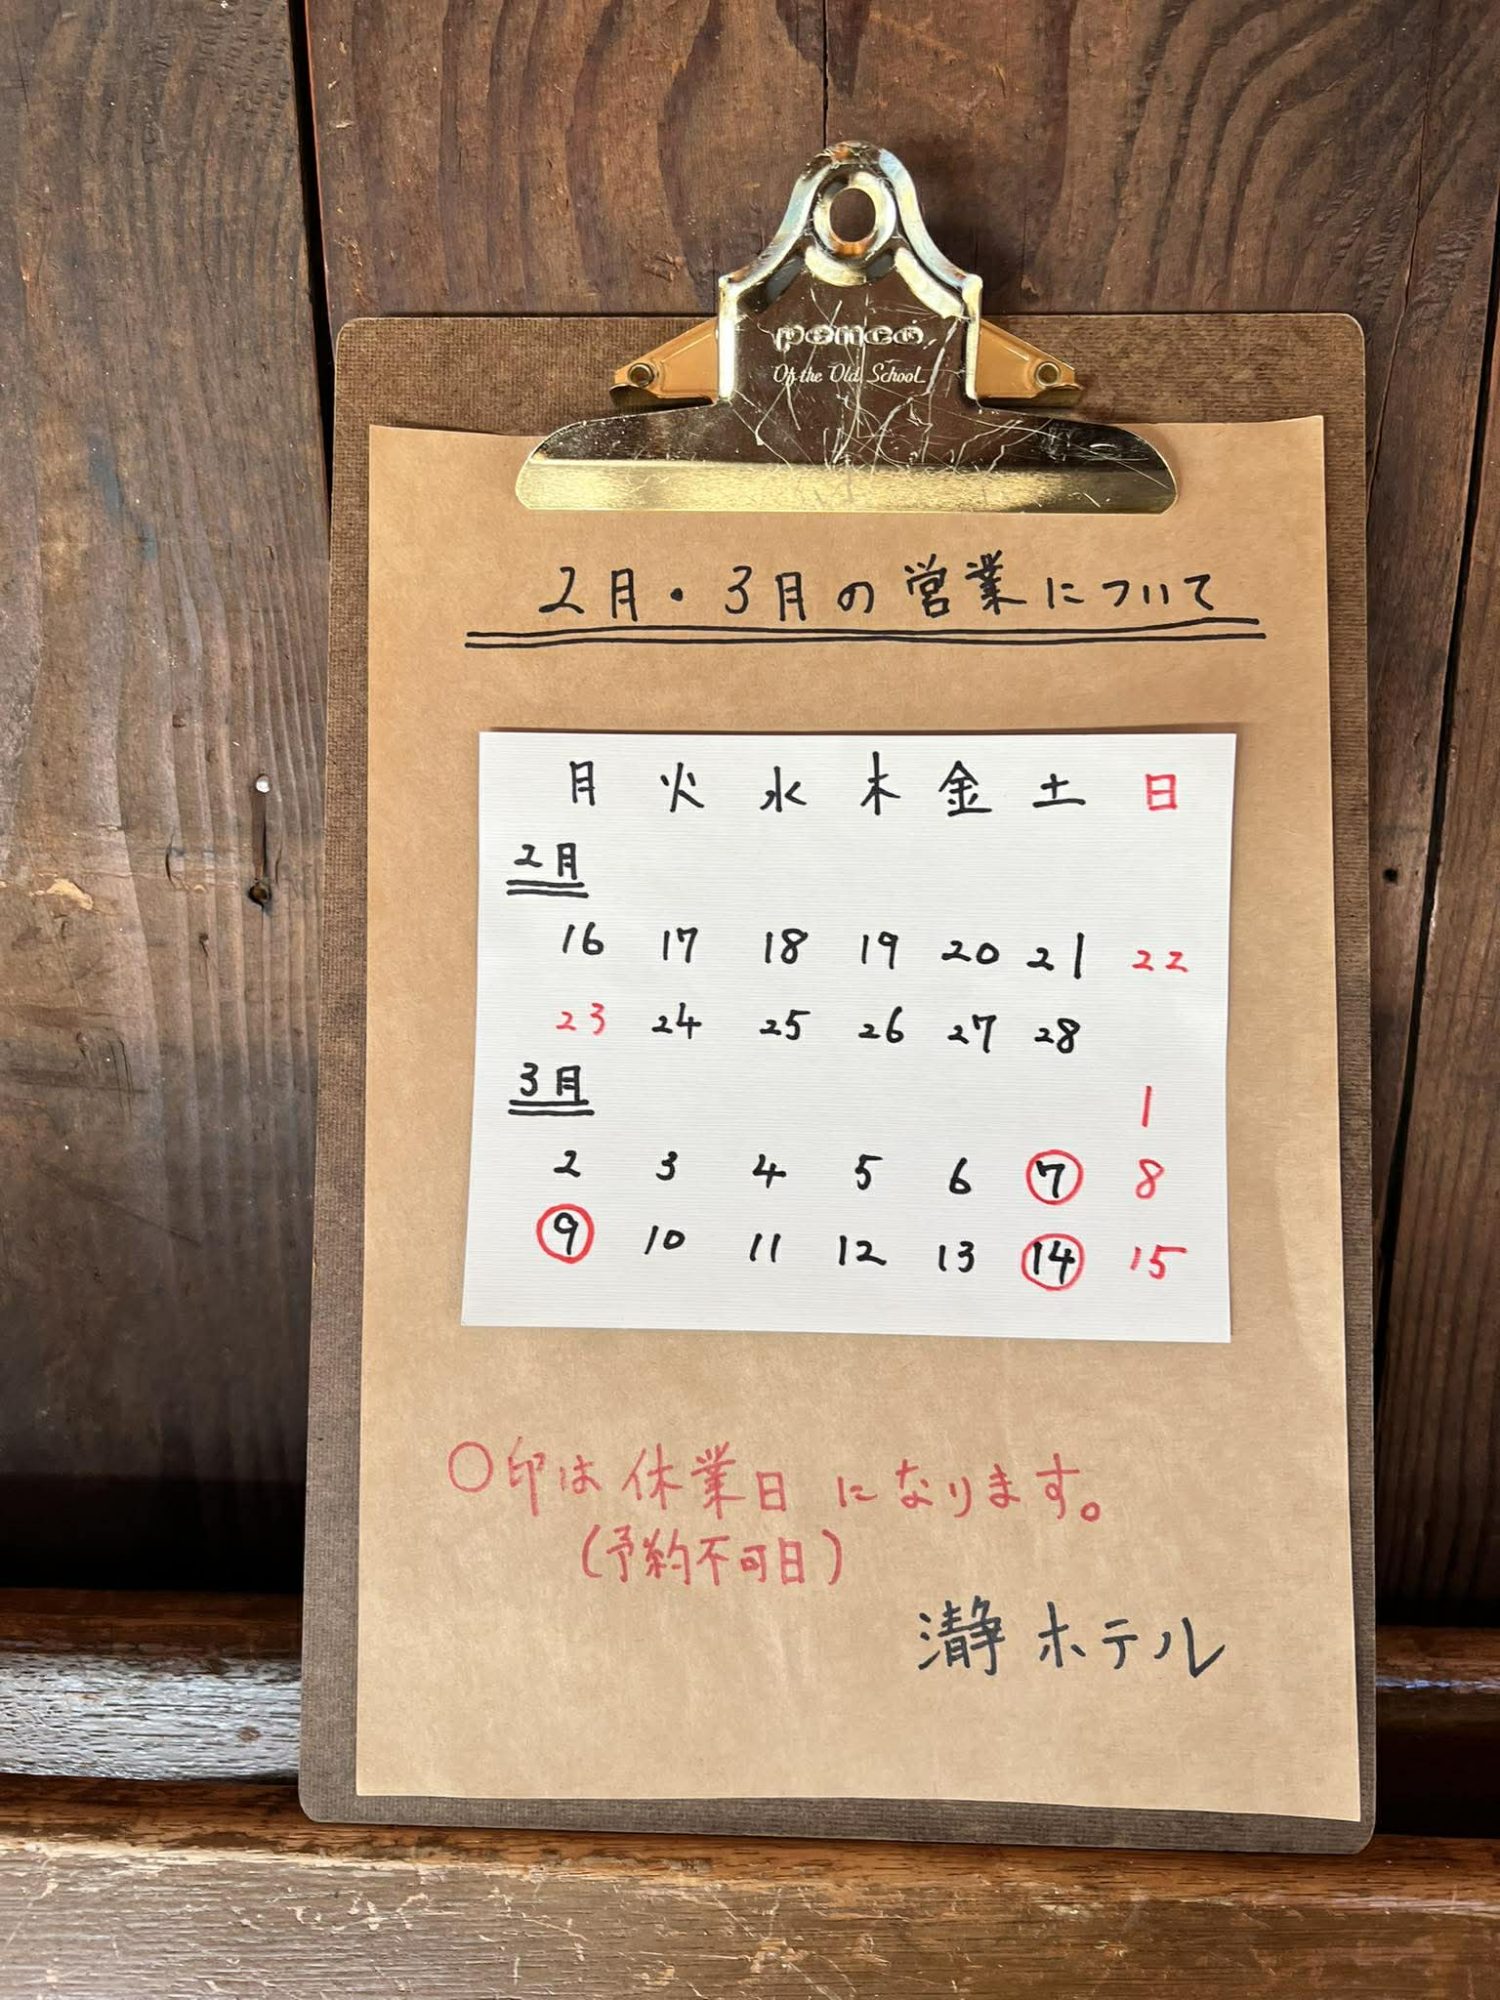 penco.
Of the Old School
2月・3月の営業について
月 火 水 木 金 土 日
2月
16 17 18 19 20 21 22
23 24 25 26 27 28
3月
1
2 3 4 5 6 7 8
9 10 11 12 13 14 15
○印は休業日になります。
(予約不可日)
瀞ホテル